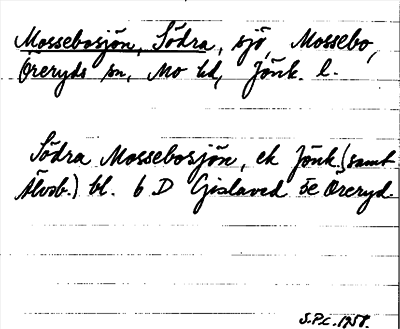 Mossebosjön, Södra, sjö, Mossebo,
Öreryds sn, Mo hd, Jönk. l.
Södra Mossebosjön, ek Jönk. (samt
Älvsb.) bl. 6 D Gislaved 5e Öreryd.
S.P.L. 1958.